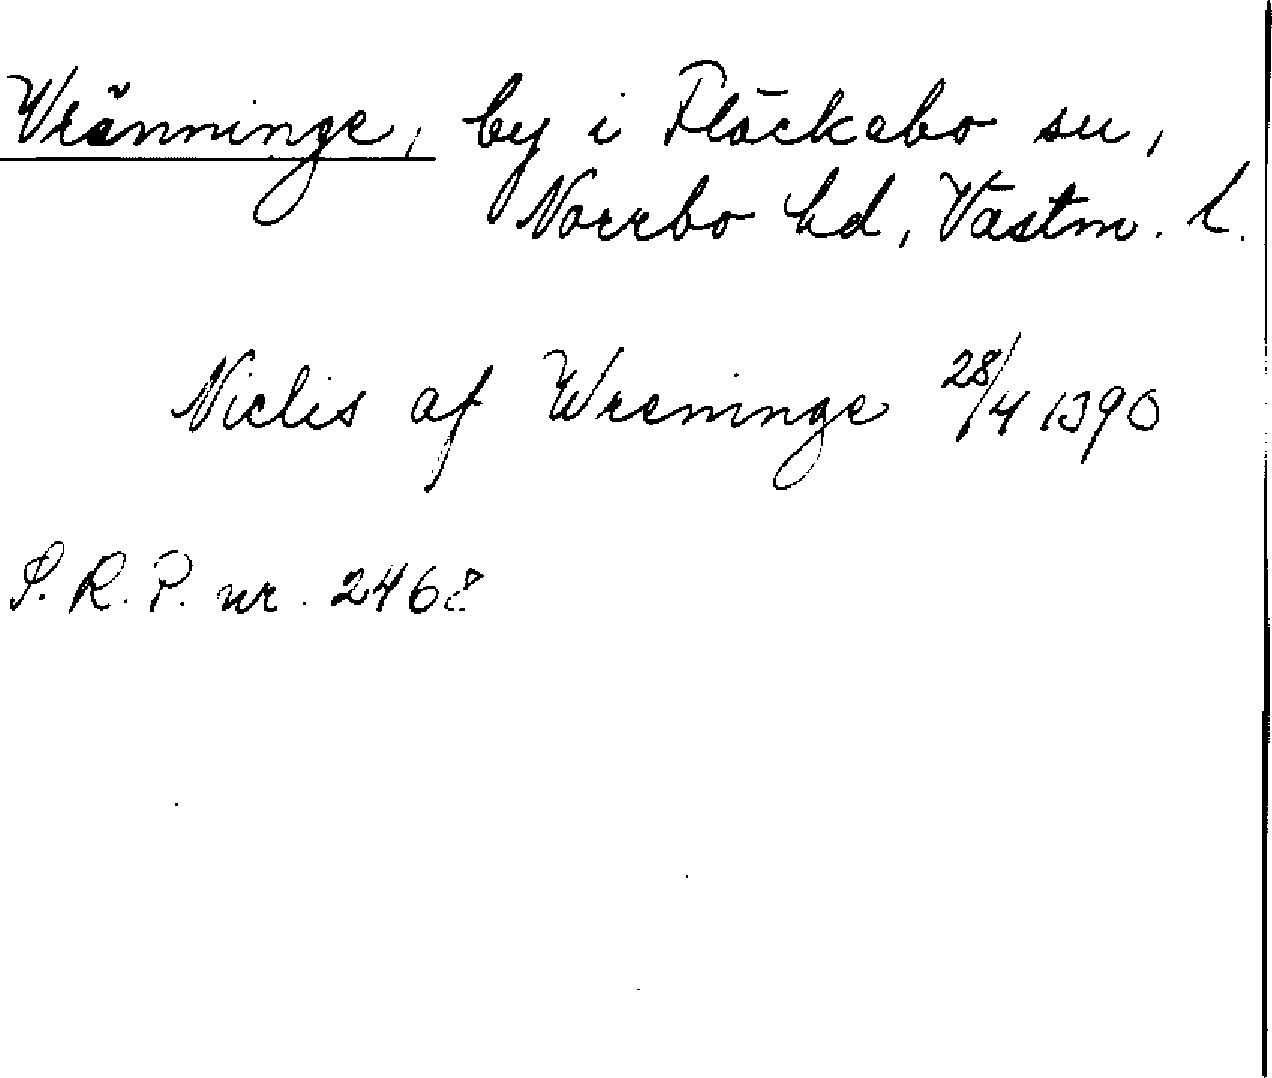 Vränninge, by i Fläckebo sn,
Norrbo hd, Västm. l.
Niclis af Wreninge 28/4 1390
S. R. P. nr. 2468